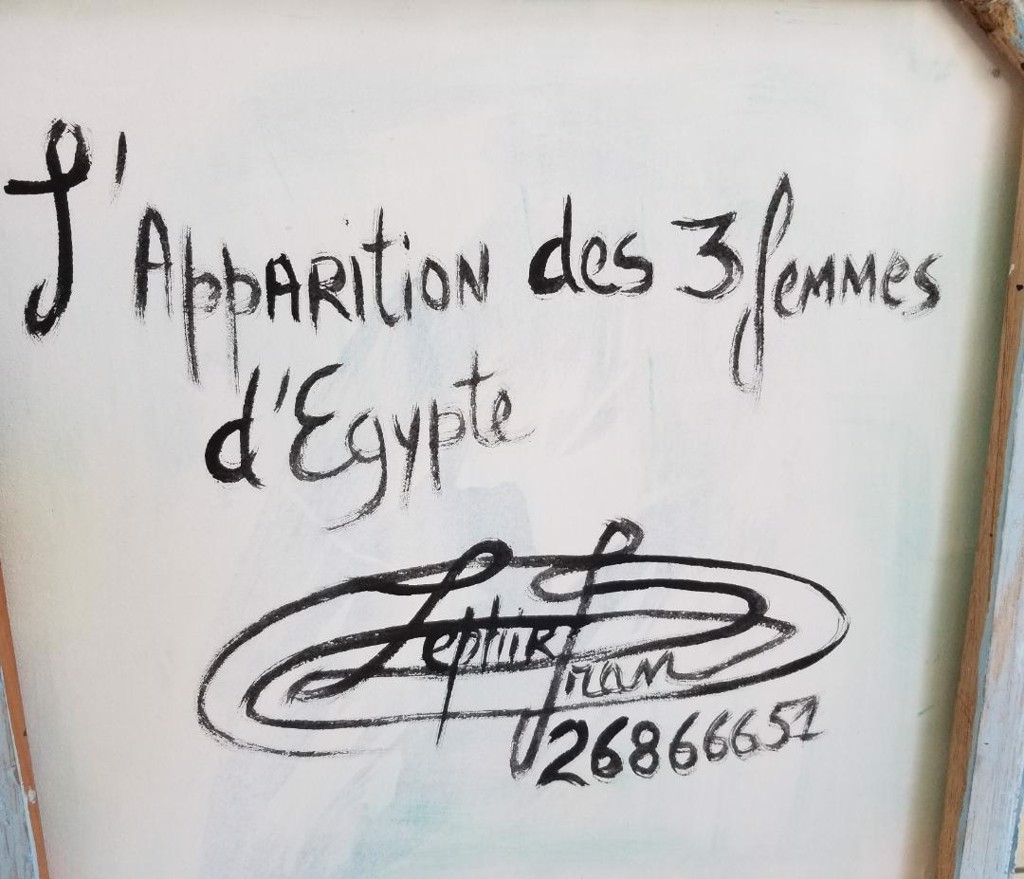 L'Apparition des 3 femmes
d'Egypte
Zephir
26866651